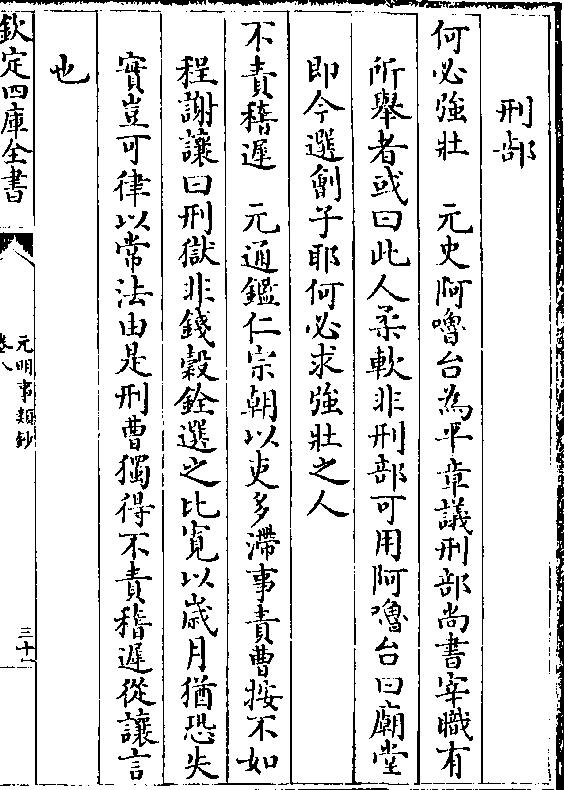 刑部
何必強壯　元史阿嚕台為平章議刑部尚書宰職有
所舉者或曰此人柔軟非刑部可用阿嚕台曰廟堂
即今選劊子耶何必求強壯之人
不責稽遲　元通鑑仁宗朝以吏多滯事責曹按不如
程謝讓曰刑獄非錢穀銓選之比寛以嵗月猶恐失
實豈可律以常法由是刑曹獨得不責稽遲從讓言
也
欽定四庫全書
元明事類鈔
卷八
三十一